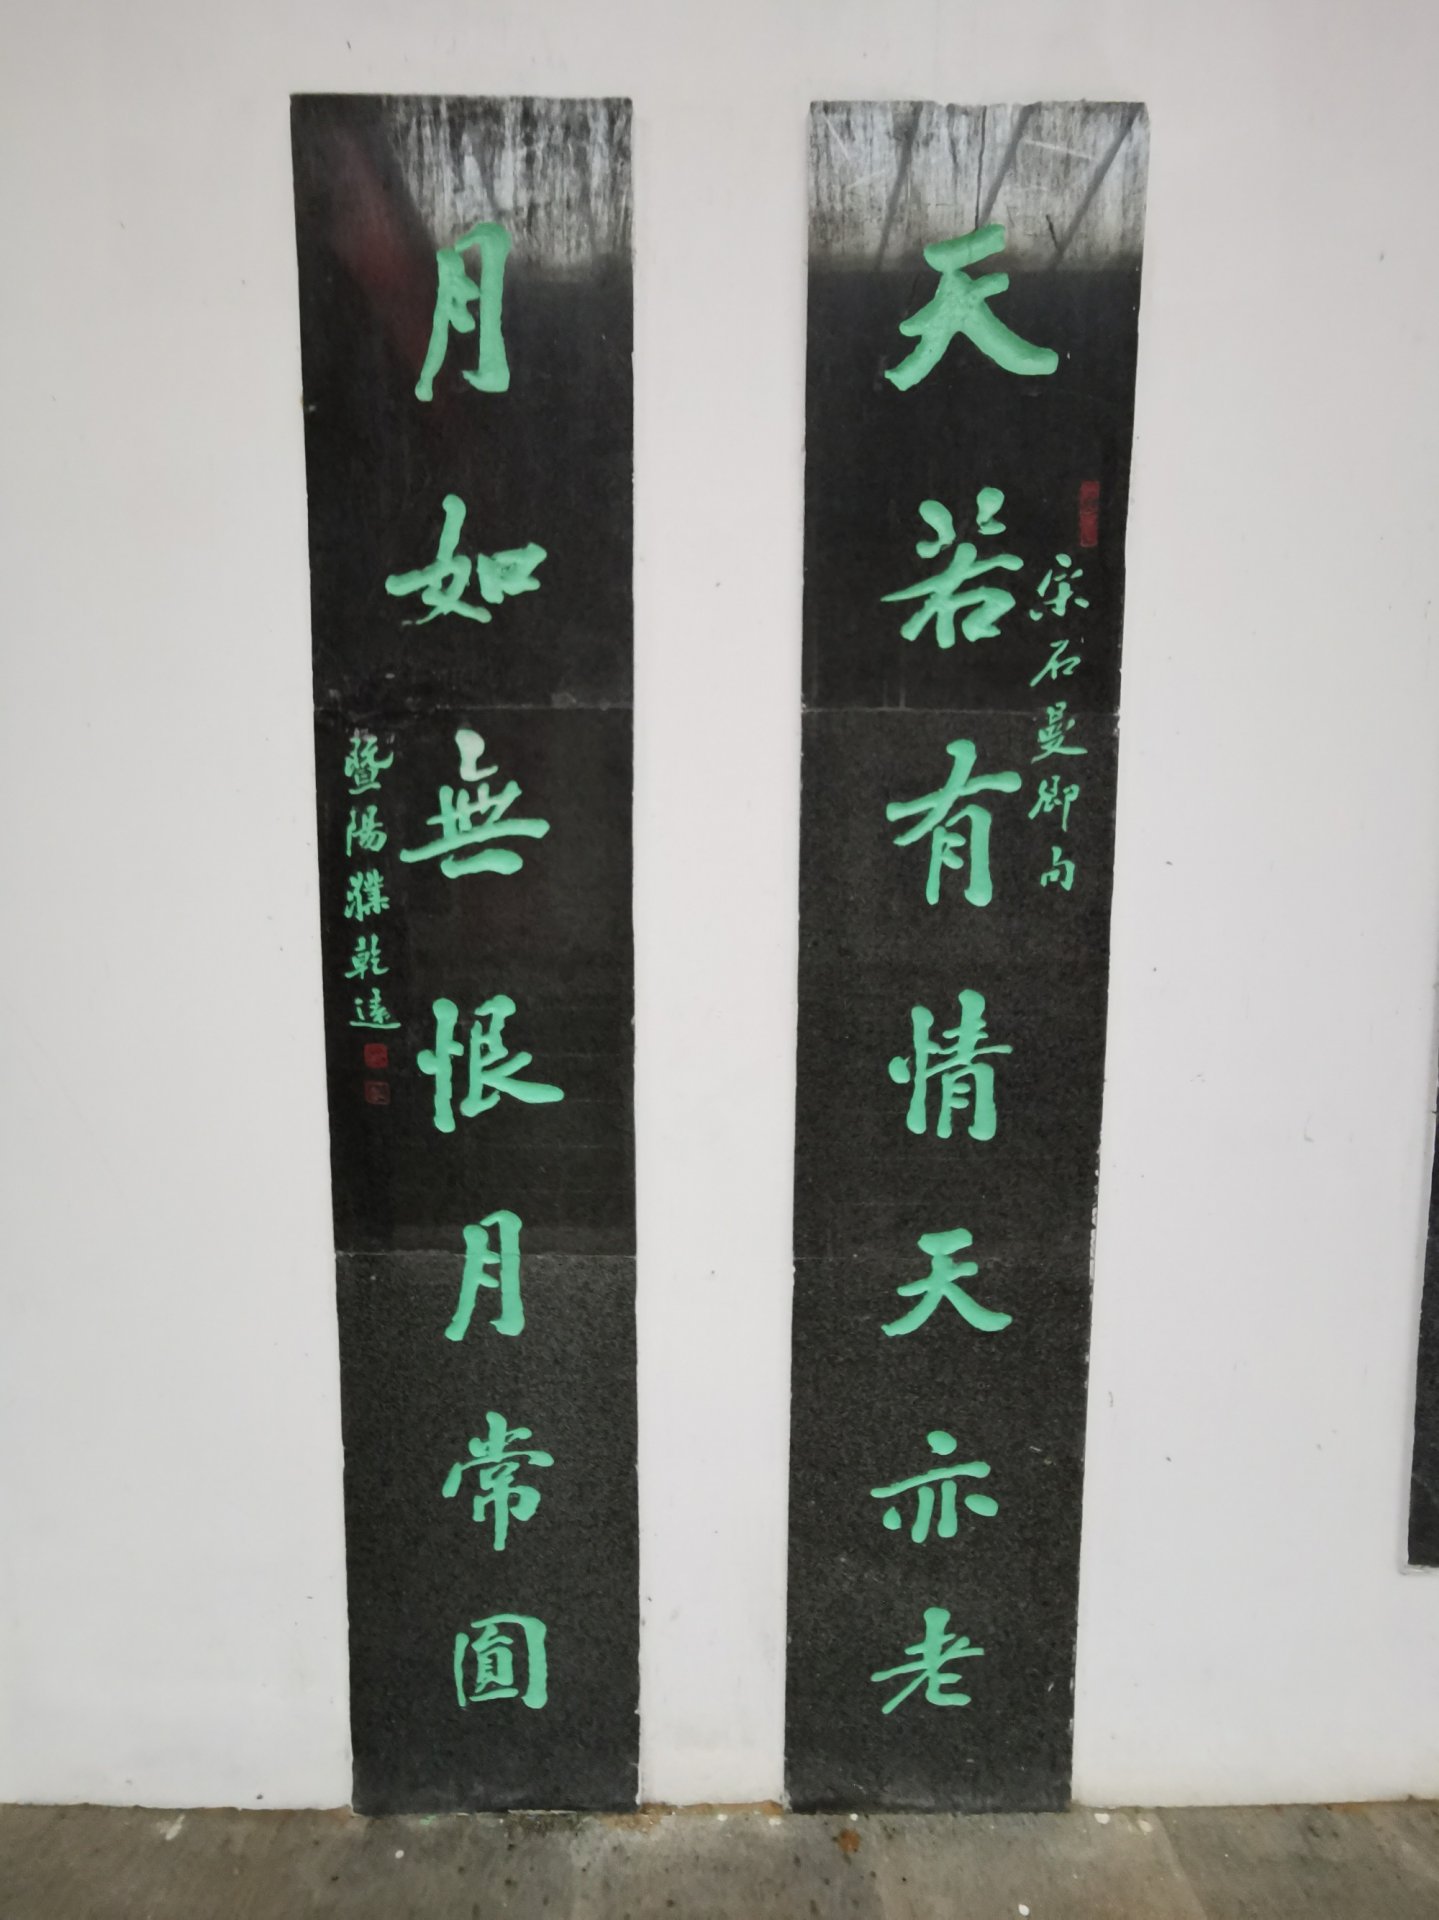 天若有情天亦老
宋石曼卿句
月如無恨月常圓
暨陽 乾遠